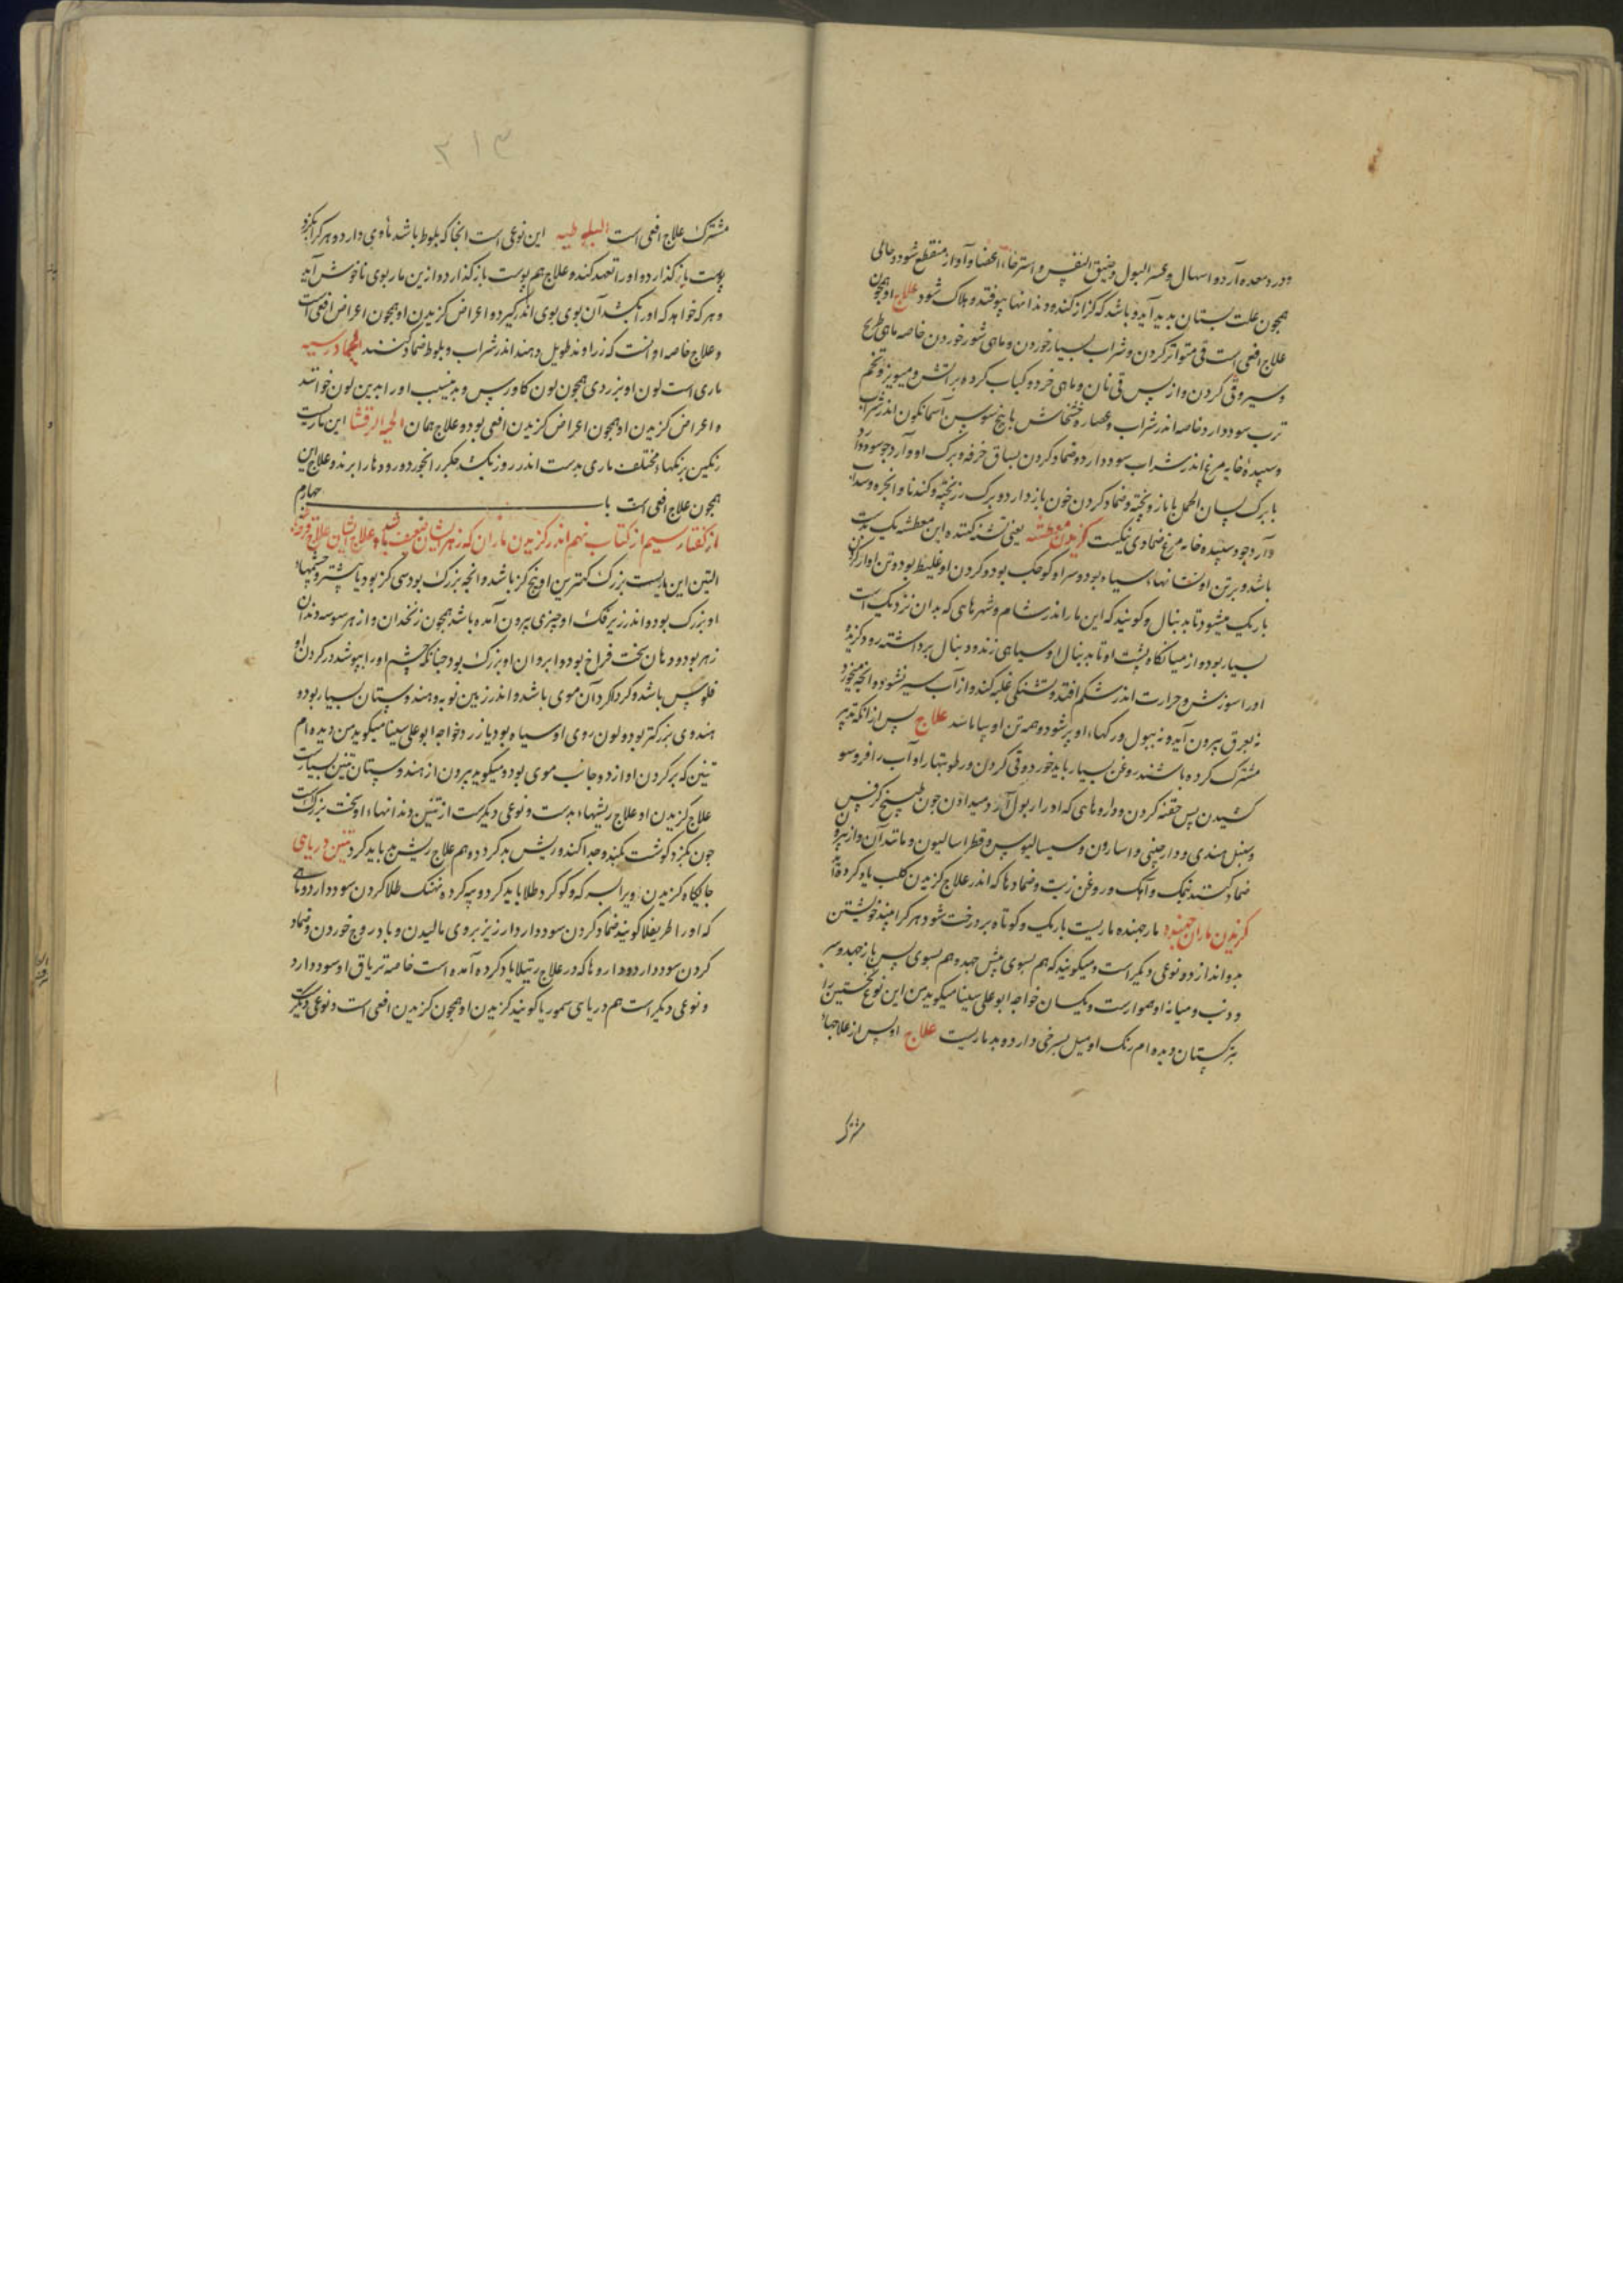 ودرد معده آرد و اسهال و عسر البول و ضیق النفس و استرخاء اعضا و آواز منقطع شود و حالی
همچون علت لستان پدید آید و باشد که کزاز کند و دندانها بیوفتد و هلاک شود علاج او همچون
علاج افعی است قی متواتر کردن و شراب بسیار خوردن و ماهی شور خوردن خاصه ماهی طریح
و سیر و قی کردن و از پس قی نان و ماهی خرد و کباب کرده بر آتش و میویز و تخم
ترب سود دارد خاصه اندر شراب و عصاره خشخاش با بیخ سوسن آسمانگون اندر شراب
و سپیده خایه مرغ اندر شراب سود دارد و ضماد کردن بساق خرفه و برک او و آرد جو سود دارد
با برک لسان الحمل یا مازو پخته و ضماد کردن خون باز دارد و برک رز پخته و کندنا و انجره و سداب
و آرد جو و سپیده خایه مرغ ضمادی نیکست کزیدن معطشه یعنی تشنه کننده این معطشه یک بدست
باشد و بر تن او نشانهاء سیاه بود و سر او کوچک بود و کردن او غلیظ بود و تن او از کردن
باریک میشود تا بدنبال و کویند که این مار اندر شام و شهرهای که بدان نزدیک است
بسیار بود و از میانگاه پشت او تا بدنبال او سیاهی زند و دنبال برداشته رود کزیده
او را سوزش و حرارت اندر شکم افتد و تشنکی غلبه کند و از آب سیر نشود و انچه میخورد
نه بعرق بیرون آید و نه ببول و رکهاء او پر شود و همه تن او بیاماسد علاج پس از انکه تدبیر
مشترک کرده باشند روغن بسیار باید خورد و قی کردن و رطوبتها را و آب را فروسو
کشیدن پس حقنه کردن و داروهای که ادرار بول آرد میدادن چون طبیخ کرفس
و سنبل هندی و دارچینی و اسارون و سیسالیوس و فطراسالیون و مانند آن و از بیرون
ضماد کنند نمک و آهک و روغن زیت و ضمادها که اندر علاج کزیدن کلب یاد کرده آید
کزیدن ماران جهنده مار جهنده ماریست باریک و کوتاه بر درخت شود هر کرا بیند خویشتن
بدو اندازد و نوعی دیکر است و میکویند که هم بسوی پیش جهد و هم بسوی پس باز جهد و سر
و ذنب و میانه او هموارست و یکسان خواجه ابوعلی سینا میکوید من این نوع نخستین را
بترکستان دیده ام رنک او میل بسرخی دارد و بد ماریست علاج او پس از علاجهاء
مشترک
۳۱۳
مشترک علاج افعی است البلوطیه این نوعی است آنجا که بلوط باشد ماوی دارد و هر کرا بکزد
پوست باز کذارد و او را تعهد کننده و علاج هم پوست باز کذارد و ازین مار بوی ناخوش آید
و هر که خواهد که او را بکشد آن بوی بوی اندر کیرد و اعراض کزیدن او همچون اعراض افعی است
و علاج خاصه او آنست که زراوند طویل دهند اندر شراب و بلوط ضماد کنند الجادرسیه
ماری است لون او بزردی همچون لون کاورس و بدین سبب او را بدین لون خوانند
و اعراض کزیدن او همچون اعراض کزیدن افعی بود و علاج همان الحیة الرقشا این ماریست
رنکین برنکهاء مختلف ماری بدست اندر روز یکشد جکر را بخورد و رودها را ببرد و علاج این
همچون علاج افعی است باب چهارم
از کفتار سیم از کتاب نهم اندر کزیدن ماران که زهر ایشان ضعیف باشد و علاج ایشان علاج قرحه
التنین این ماریست بزرک کمترین او پنج کز باشد و انچه بزرک بود سی کز بود یا بیشتر و چشمهاء
او بزرک بود و اندر زیر فک او چیزی بیرون آمده باشد همچون زنخدان و از هر سو سه دندان
زهر بود و دهان سخت فراخ بود و ابروان او بزرک بود چنانکه چشم او را بپوشد در کردن او
فلوس باشد و کرداکرد آن موی باشد و اندر زمین نوبه و هندوستان بسیار بود و
هندوی بزرکتر بود و لون روی او سیاه بود یا زرد خواجه ابوعلی سینا میکوید من دیده ام
تنین که بر کردن او از دو جانب موی بود و میکوید بیرون از هندوستان تنین بسیارست
علاج کزیدن او علاج ریشهاء بدست و نوعی دیکرست از تنین دندانهاء او سخت بزرکست
چون بکزد کوشت بکند و جدا کند و ریش بد کردد و هم علاج ریش بد باید کرد تنین دریایی
جایکاه کزیدن ویرا بسرکه و کوکرد طلا باید کرد و پیه کرده نهنک طلا کردن سود دارد و ماهی
که او را طریفلا کویند ضماد کردن سود دارد ارزیز بروی مالیدن و بادروج خوردن و ضماد
کردن سود دارد و داروها که در علاج رتیلا یاد کرده آمده است خاصه تریاق او سود دارد
و نوعی دیکر است هم دریایی سموریا کویند کزیدن او همچون کزیدن افعی است و نوعی دیکر